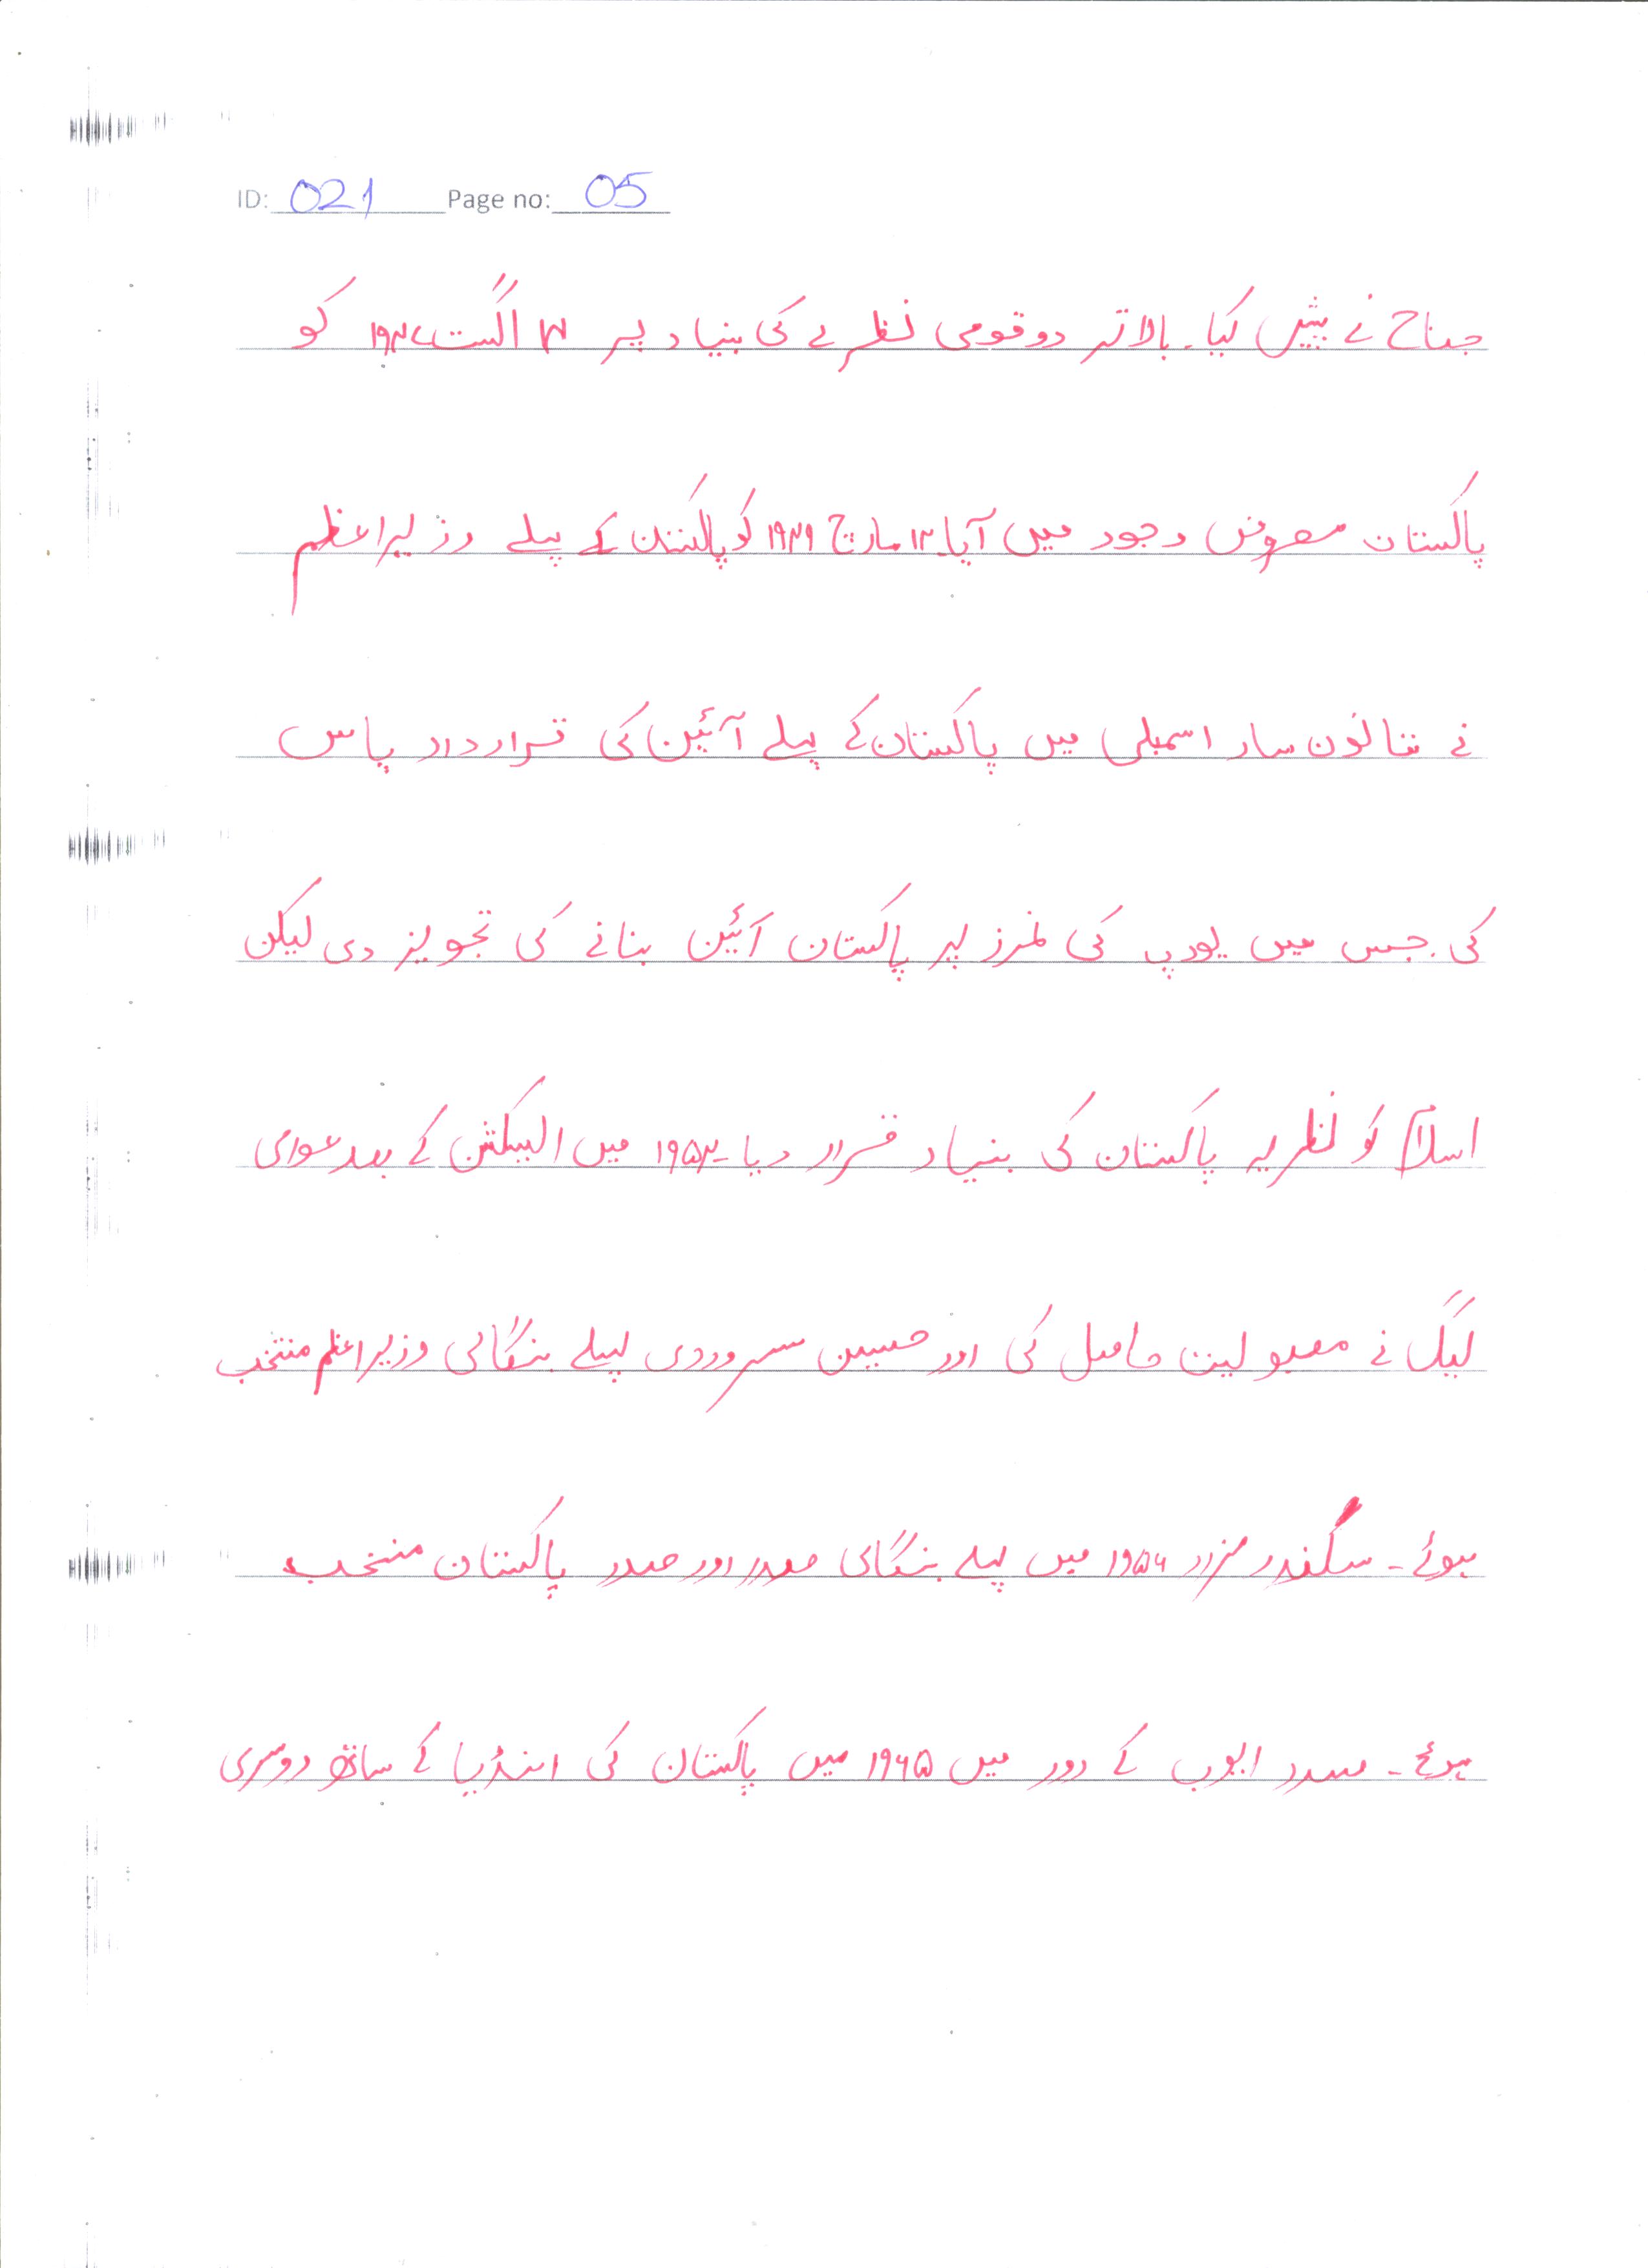 ID: 021 Page no: 05
جناح نے پیش کیا۔ بالاتر دو قومی نظریے کی بنیاد پر ۱۴ اگست ۱۹۴۷ کو
پاکستان معروض وجود میں آیا۔ ۱۲ مارچ ۱۹۴۹ کو پاکستان کے پہلے وزیراعظم
نے قانون ساز اسمبلی میں پاکستان کے پہلے آئین کی قرارداد پاس
کی۔ جس میں یورپ کی طرز پر پاکستان آئین بنانے کی تجویز دی لیکن
اسلام کو نظریہ پاکستان کی بنیاد قرار دیا۔ ۱۹۵۴ میں الیکشن کے بعد عوامی
لیگ نے مقبولیت حاصل کی اور حسین سہروردی پہلے بنگالی وزیراعظم منتخب
ہوئے۔ سکندر مرزا ۱۹۵۶ میں پہلے بنگالی صدر اور صدر پاکستان منتخب
ہوئے۔ صدر ایوب کے دور میں ۱۹۶۵ میں پاکستان کی انڈیا کے ساتھ دوسری